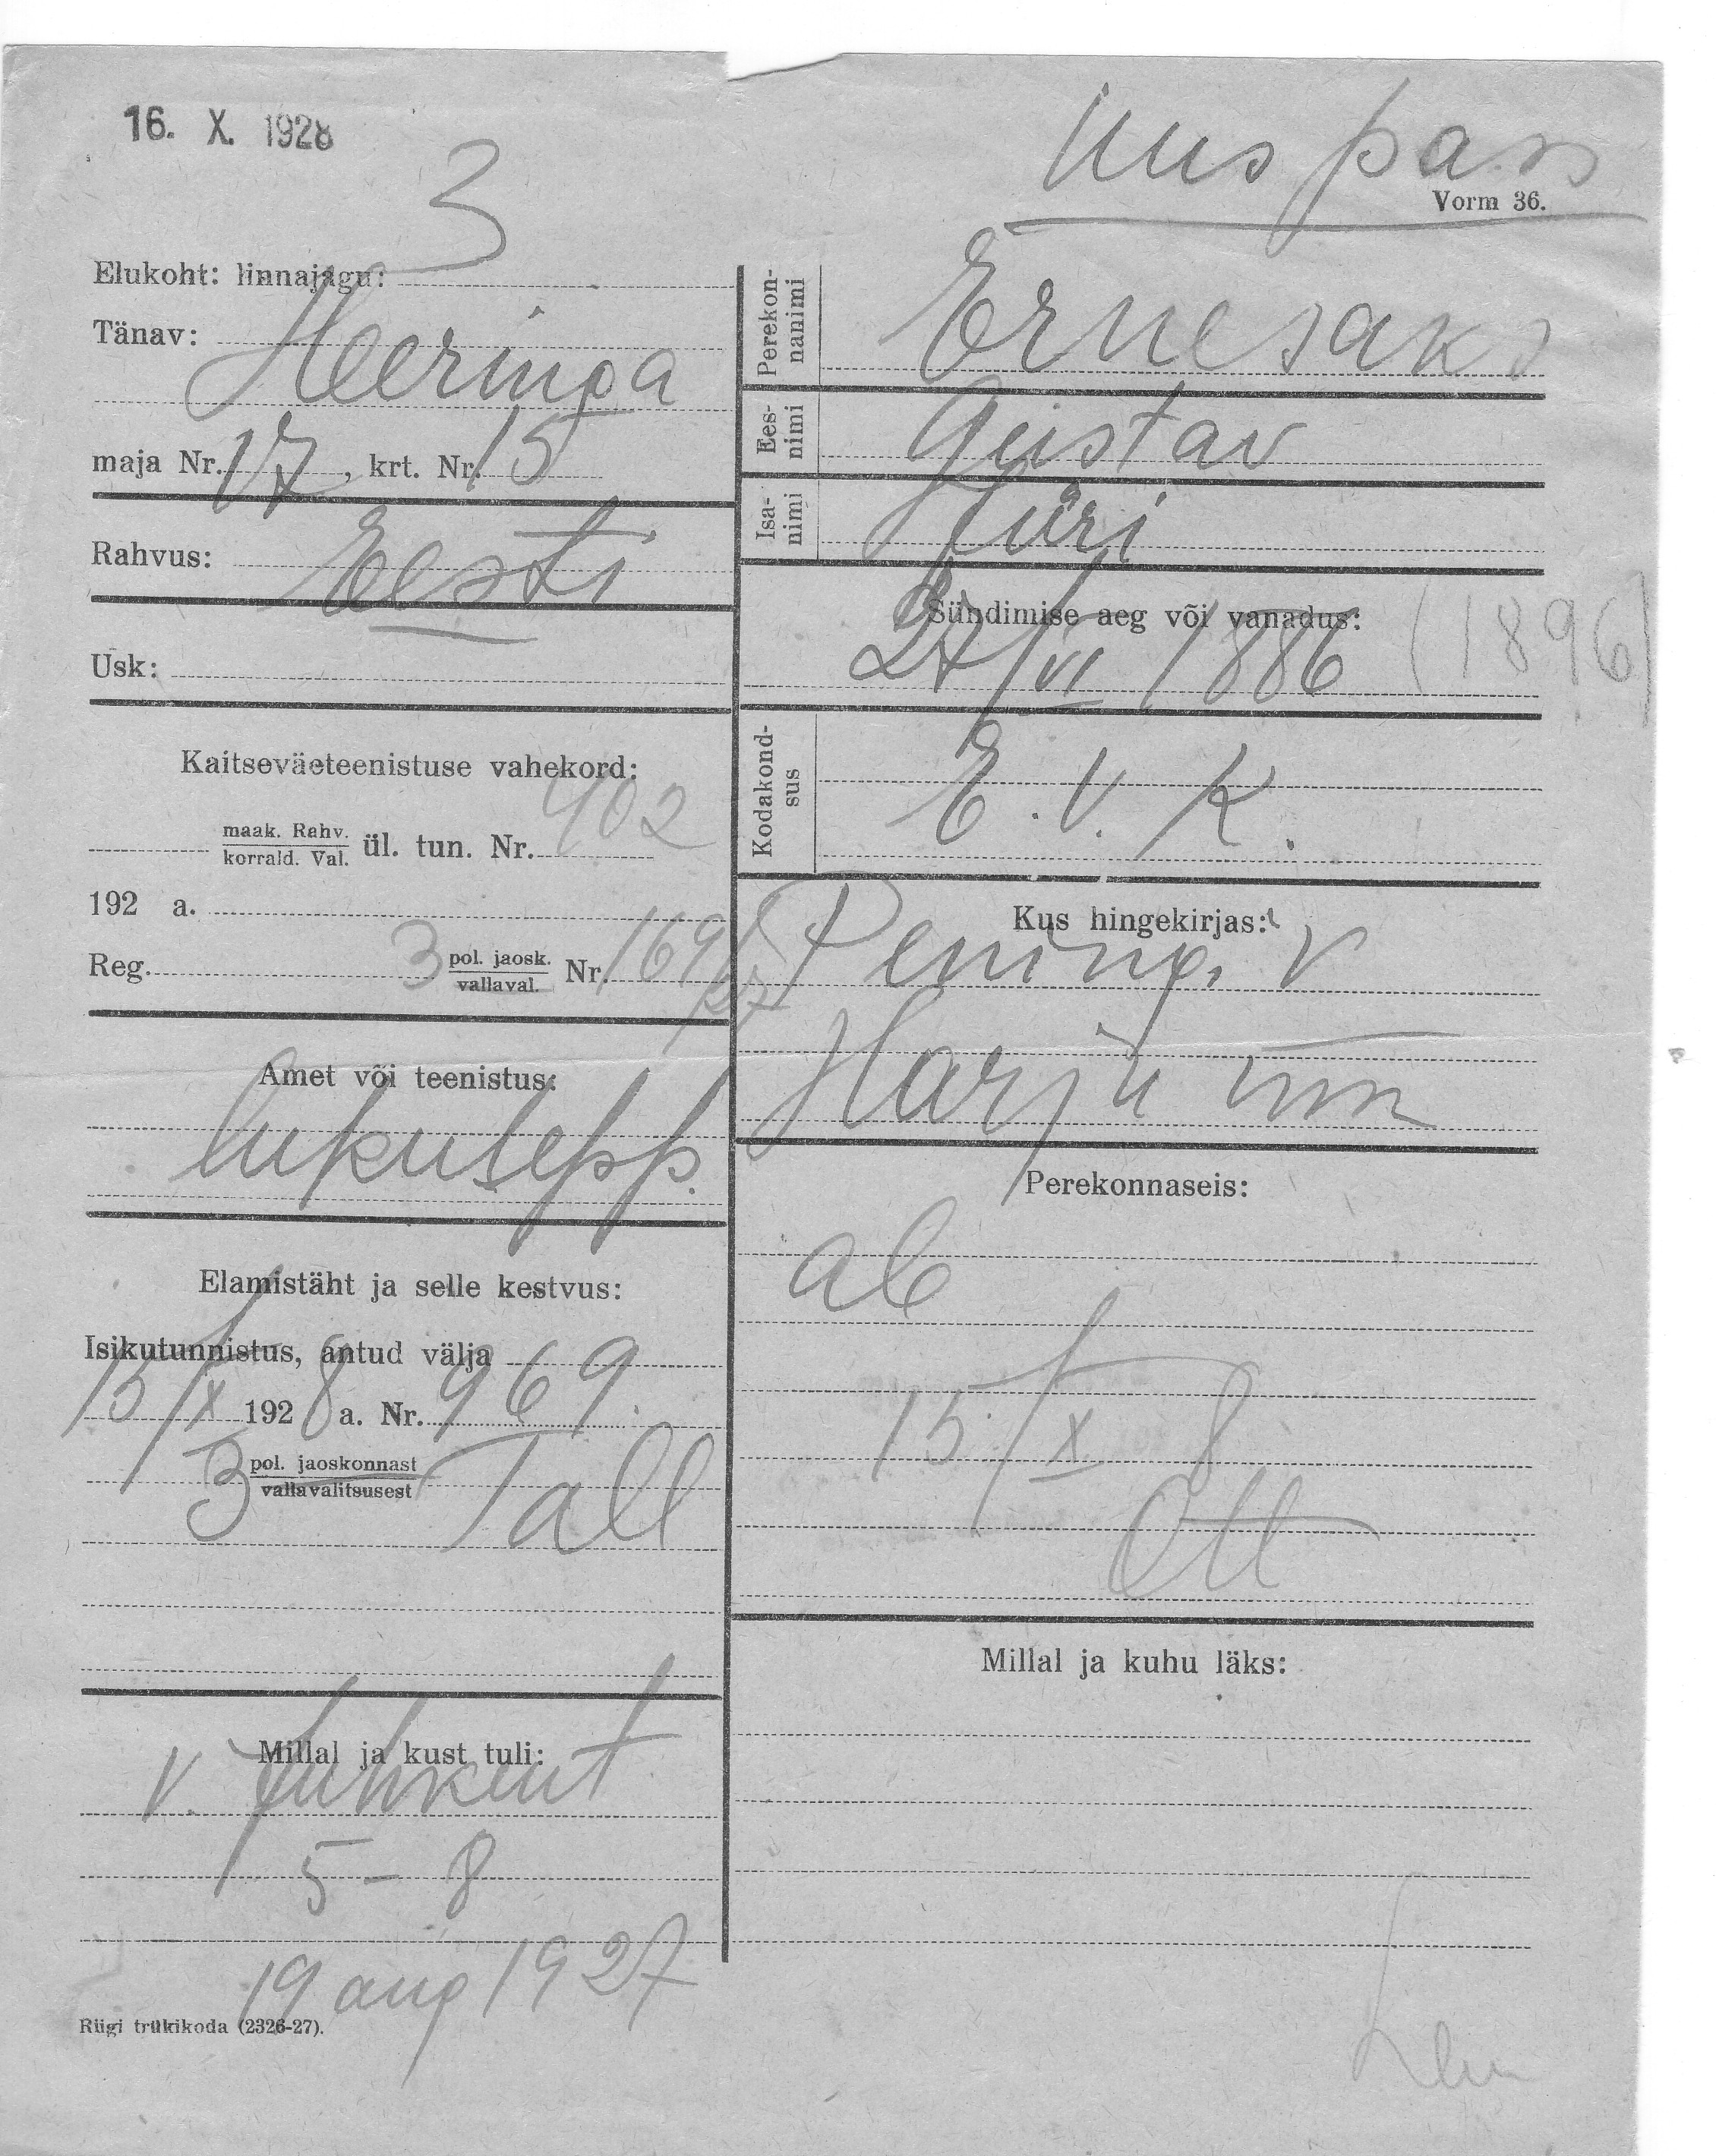 16. X. 1928
Uus pass
Vorm 36.
3
Elukoht: linnajagu:
Tänav: Heeringa
maja Nr. 17, krt. Nr. 15
Rahvus: Eesti
Usk:
Kaitseväeteenistuse vahekord:
maak. Rahv.
korrald. Val. ül. tun. Nr. 402
192 a.
Reg. 3 pol. jaosk.
vallaval. Nr. 169
27
Amet või teenistus:
lukusepp.
Elamistäht ja selle kestvus:
Isikutunnistus, antud välja
15/X 1928 a. Nr. 969.
3 pol. jaoskonnast
vallavalitsusest Tall
Millal ja kust tuli:
5 - 8
19 aug 1927
Riigi trükikoda (2326-27).
Perekon-
nanimi Ernesaks
Ees-
nimi Gustav
Isa-
nimi Jüri
Sündimise aeg või vanadus:
27/VI 1886 (1896)
Kodakond-
sus E. V. K.
Kus hingekirjas:
Pening. v
Harju mm
Perekonnaseis:
ab
15/X 8
Ott
Millal ja kuhu läks: